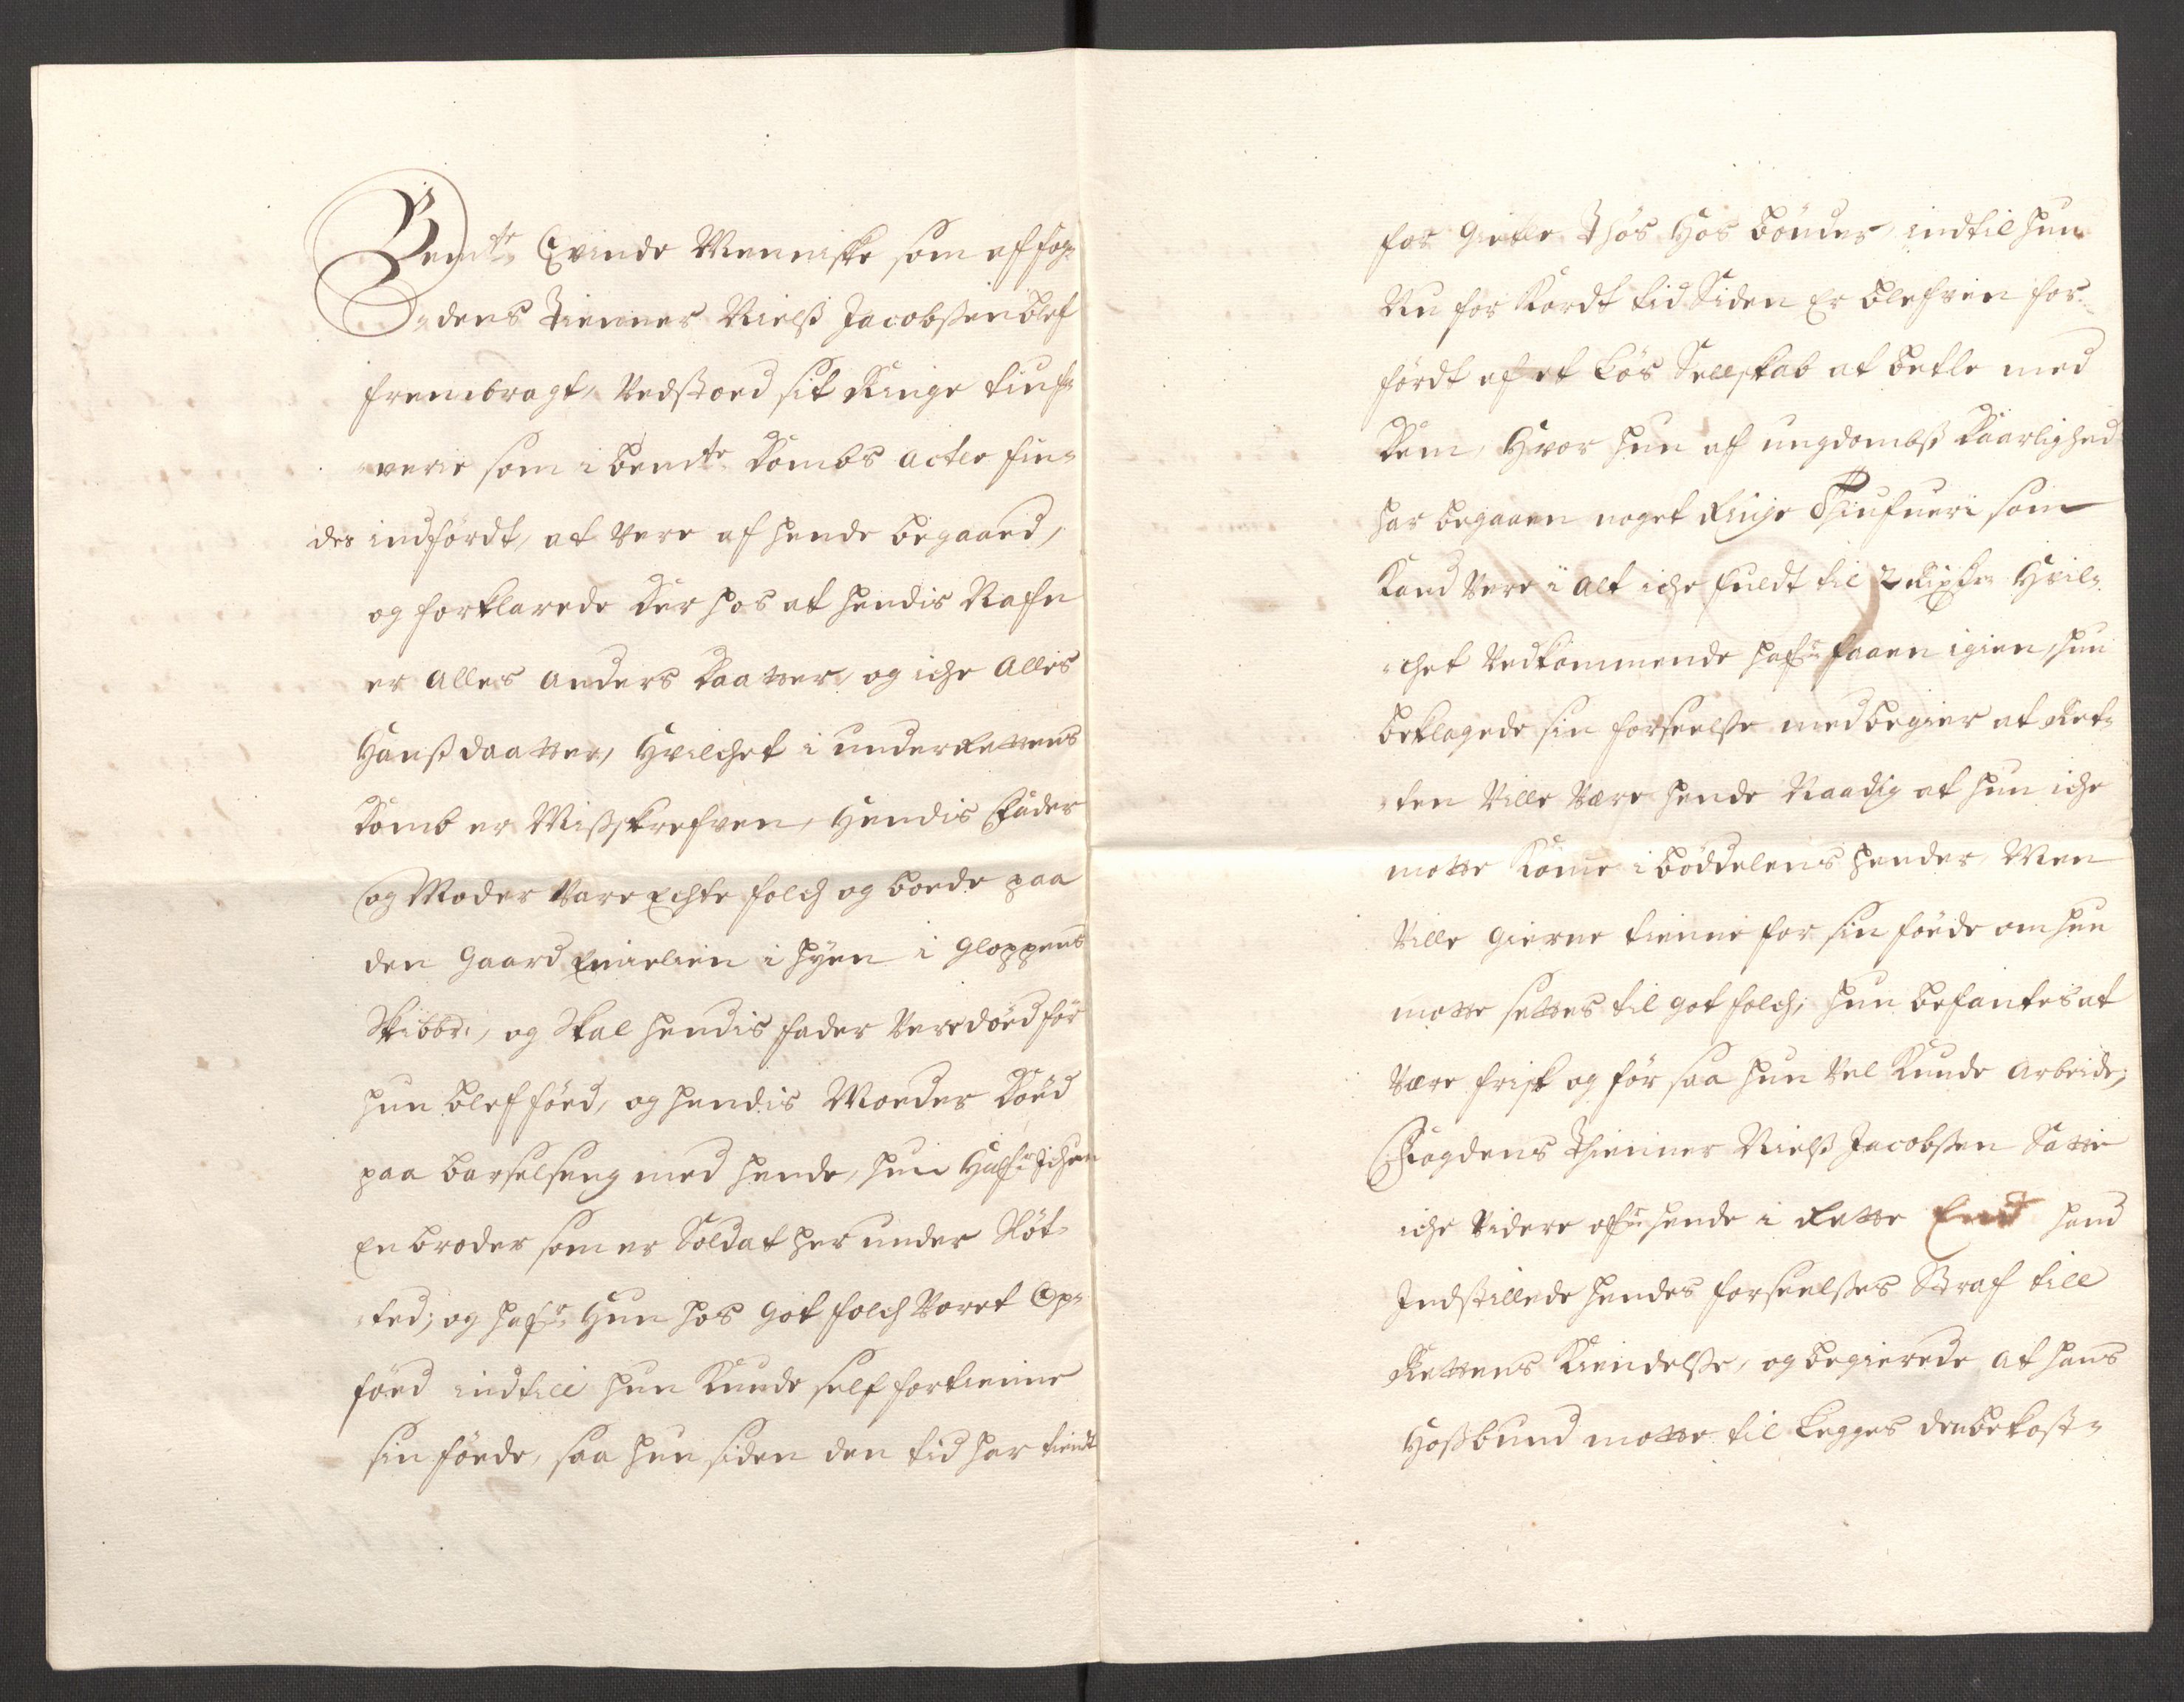 Bem:te Qvinde Menniske som af fog-
dens Tienner Nielß Jacobßen blef
frembragt, Vedstoed sit Ringe tiuf-
verie som i bem:te Dombs acter fin-
des indfördt, at vere af hende begaaed,
og forklarede der hos at hendis Nafn
er Alles Anders Daatter, og iche Alles
Hanßdaatter, Hvilchet i underRettens
Domb er Mißskrefven, Hendis Fader
og Moder Vare Echte folch og boede paa
den Gaard i Hÿen i Gloppens
Skibbr:, og Skal hendis fader Vere död för
hun blef föed, og hendis Moder Döed
paa barselseng med hende, hun Hafr Ichun
En broder som er Soldat her under Slöt-
ted; og hafr Hun hos got folch Voret Op-
föed indtill hun Kunde self fortienne
sin föede, saa hun siden den tid har tient
for Giette Thös Hos bönder, indtil hun
Nu for Kordt tid Siden Er blefven for-
fördt af et Lös Sellskab at betle med
Dem, Hvor hun af ungdombß Daarlighed
har begaaen noget Ringe Thiufveri som
Kand Vere i alt iche fuldt til 2 Rixdr Hvil-
chet Vedkommende hafr faaen igien, hun
beklagede sin forseelße med begier at Ret-
ten Ville Være hende Naadig at hun iche
motte Komme i böddelens hender, Men
Ville gierne tienne for sin föede om hun
motte settes til got folch; hun befantes at
Være frisk og för saa hun Vel Kunde Arbeide;
Fogdens Thienner Nielß Jacobßen Satte
iche Videre ofr hende i Rette End hand
Indstillede hendes forseelßes Straf till
Rettens Kiendelße, og begierede at hans
Hoßbund motte til Legges den bekost-